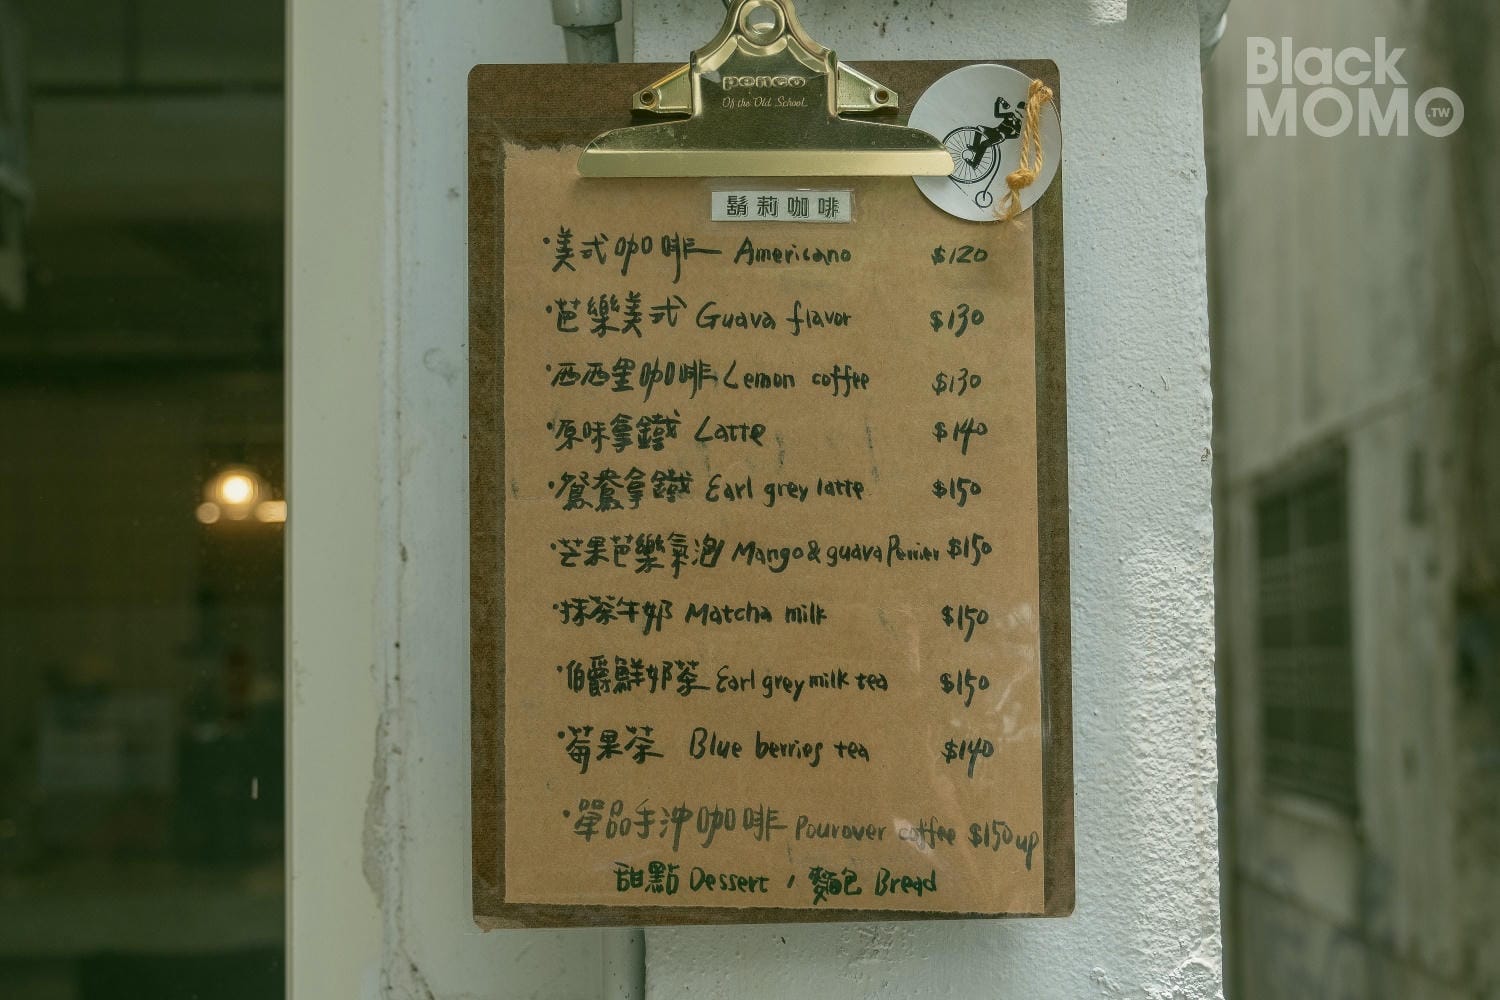 Black
MOMO.TW
penco
Of the Old School
鬍莉咖啡
·美式咖啡 Americano $120
·芭樂美式 Guava flavor $130
·西西里咖啡 Lemon coffee $130
·原味拿鐵 Latte $140
·鴛鴦拿鐵 Earl grey latte $150
·芒果芭樂氣泡 Mango & guava Perrier $150
·抹茶牛奶 Matcha milk $150
·伯爵鮮奶茶 Earl grey milk tea $150
·莓果茶 Blue berries tea $140
·單品手沖咖啡 Pourover coffee $150 up
甜點 Dessert / 麵包 Bread